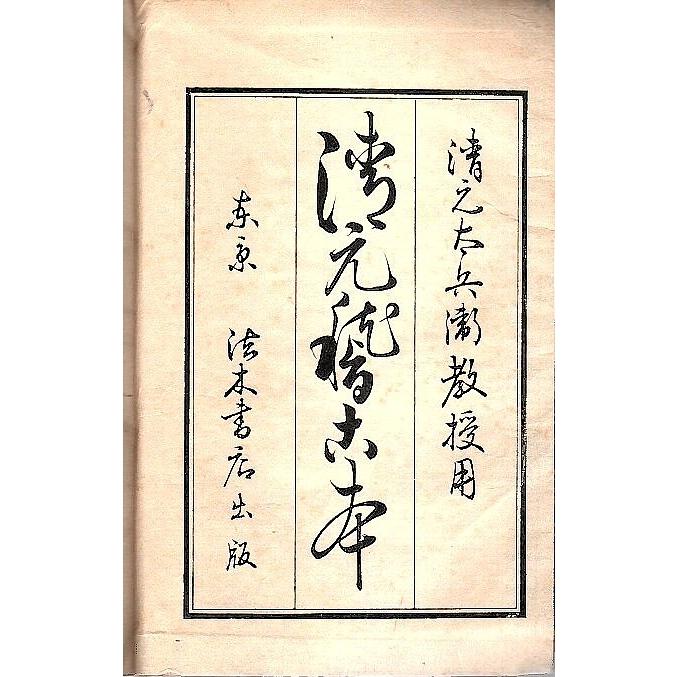 清元太兵衞教授用
清元稽古本
东京 法木書店出版